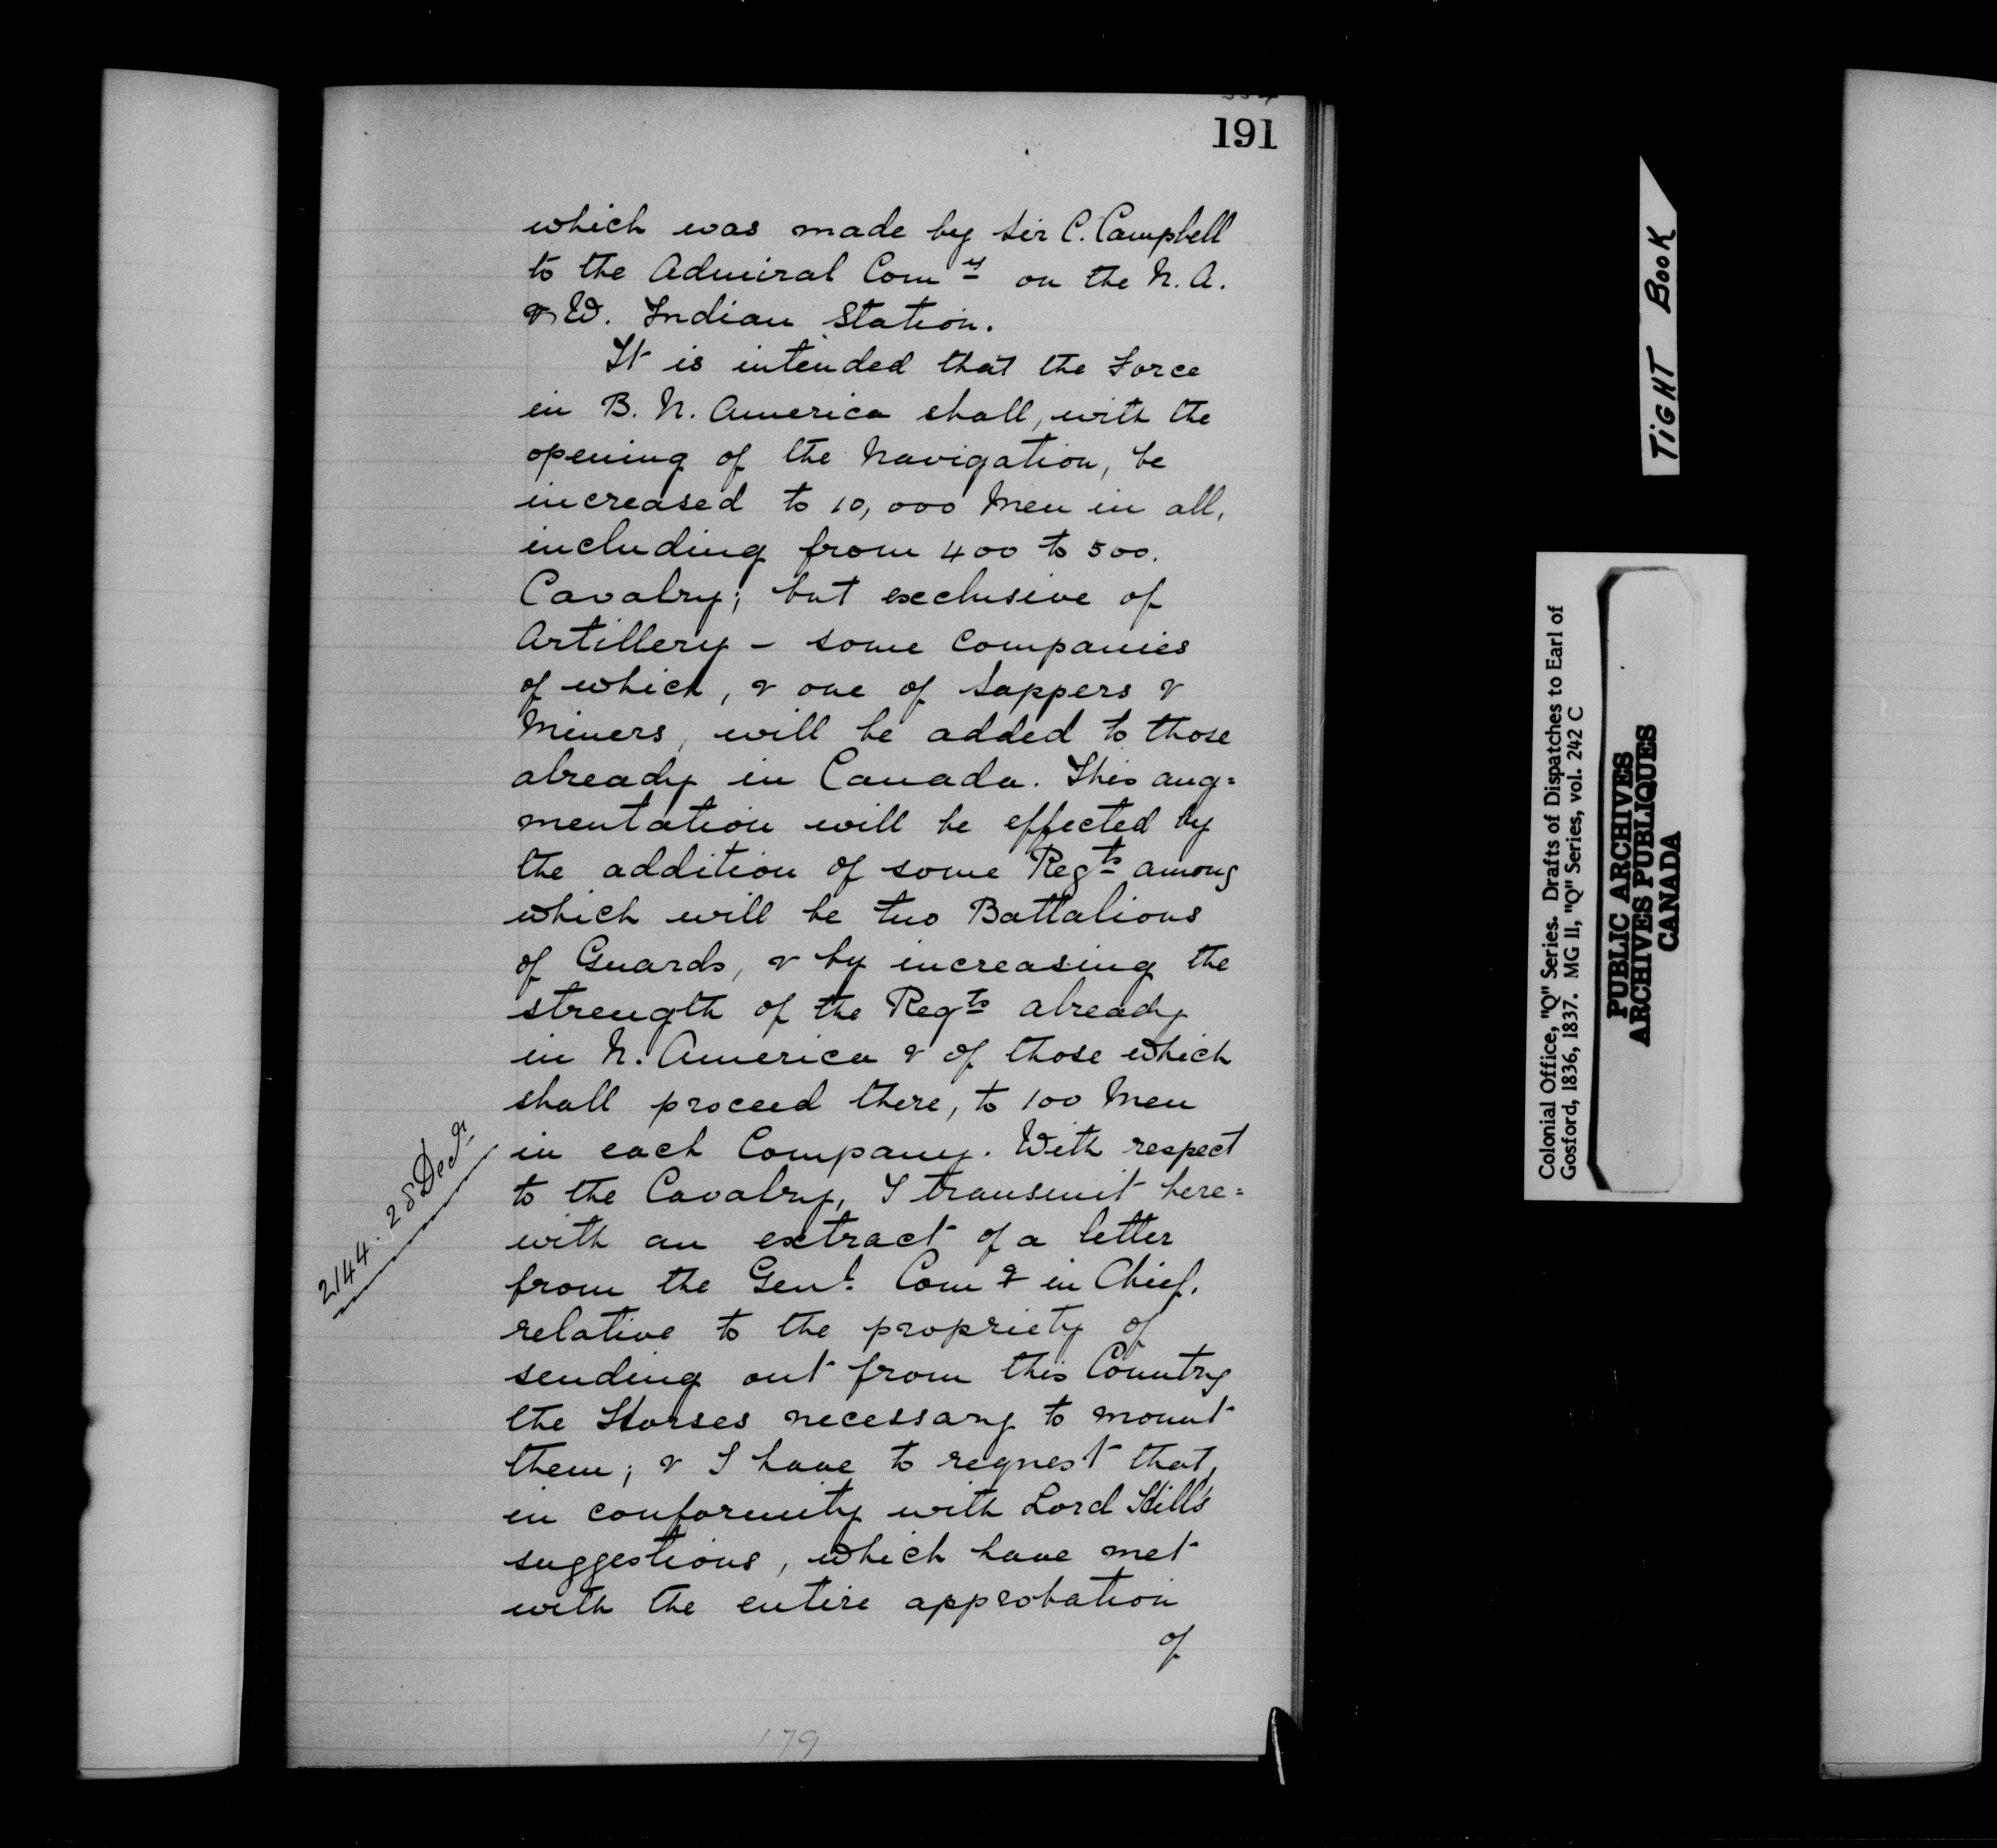 191
which was made by Sir C. Campbell
to the Admiral Com^g on the N. A.
& W. Indian Station.
It is intended that the Force
in B. N. America shall, with the
opening of the Navigation, be
increased to 10,000 Men in all,
including from 400 to 500.
Cavalry; but exclusive of
Artillery - some Companies
of which, & one of Sappers &
Miners, will be added to those
already in Canada. This aug=
mentation will be effected by
the addition of some Reg^ts among
which will be two Battalions
of Guards, & by increasing the
strength of the Reg^ts already
in N. America & of those which
shall proceed there, to 100 Men
in each Company. With respect
to the Cavalry, I transmit here=
with an extract of a letter
from the Gen^l. Com^g in Chief,
relative to the propriety of
sending out from this Country
the Horses necessary to mount
them; & I have to request that,
in conformity with Lord Hill's
suggestions, which have met
with the entire approbation
of
2144. 28 Dec^r.
179
TIGHT BOOK
Colonial Office, "Q" Series. Drafts of Dispatches to Earl of
Gosford, 1836, 1837. MG 11, "Q" Series, vol. 242 C
PUBLIC ARCHIVES
ARCHIVES PUBLIQUES
CANADA